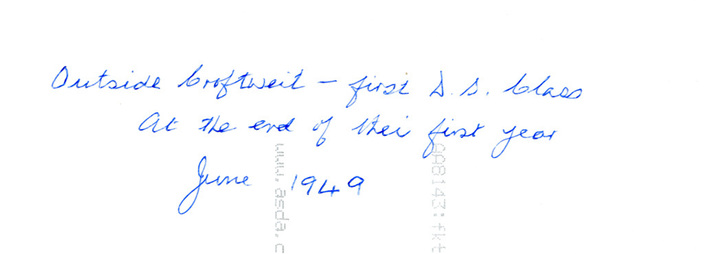 Outside Croftweit - first D. S. Class
At the end of their first year
June 1949
www.asda.c
AA8143:fkt